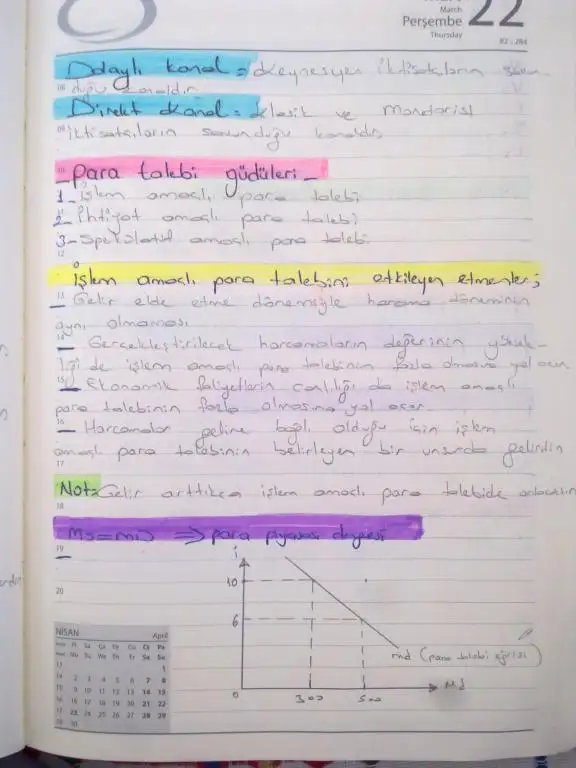 March
Perşembe 22
Thursday
82 - 284
Dolaylı kanal = Keynesyen iktisatçıların savun-
08 duğu kanaldır
Direkt Kanal = klasik ve Mondarist
09 iktisatçıların savunduğu kanaldır
10 - Para talebi güdüleri -
1 - İşlem amaçlı para talebi
11
2 - İhtiyat amaçlı para talebi
3 - Spekülatif amaçlı para talebi
12
İşlem amaçlı para talebini etkileyen etmenler;
13 - Gelir elde etme dönemiyle harcama döneminin
aynı olmaması
14 - Gerçekleştirilecek harcamaların değerinin yüksek-
liği de işlem amaçlı para talebinin fazla olmasına yol açar.
15 - Ekonomik faliyetlerin canlılığı da işlem amaçlı
para talebinin fazla olmasına yol açar.
16 - Harcamalar geline bağlı olduğu için işlem
amaçlı para talebinin belirleyen bir unsurda gelirdir
17
Not = Gelir arttıkça işlem amaçlı para talebide
18
Ms = md => para piyasası dengesi
19
20
i
10
6
md (para talebi eğrisi)
0 300 500 Md
NİSAN April
Pt Sa Ça Pe Cu Ct Pa
Mo Tu We Th Fr Sa Su
13 1
14 2 3 4 5 6 7 8
15 9 10 11 12 13 14 15
16 16 17 18 19 20 21 22
17 23 24 25 26 27 28 29
18 30